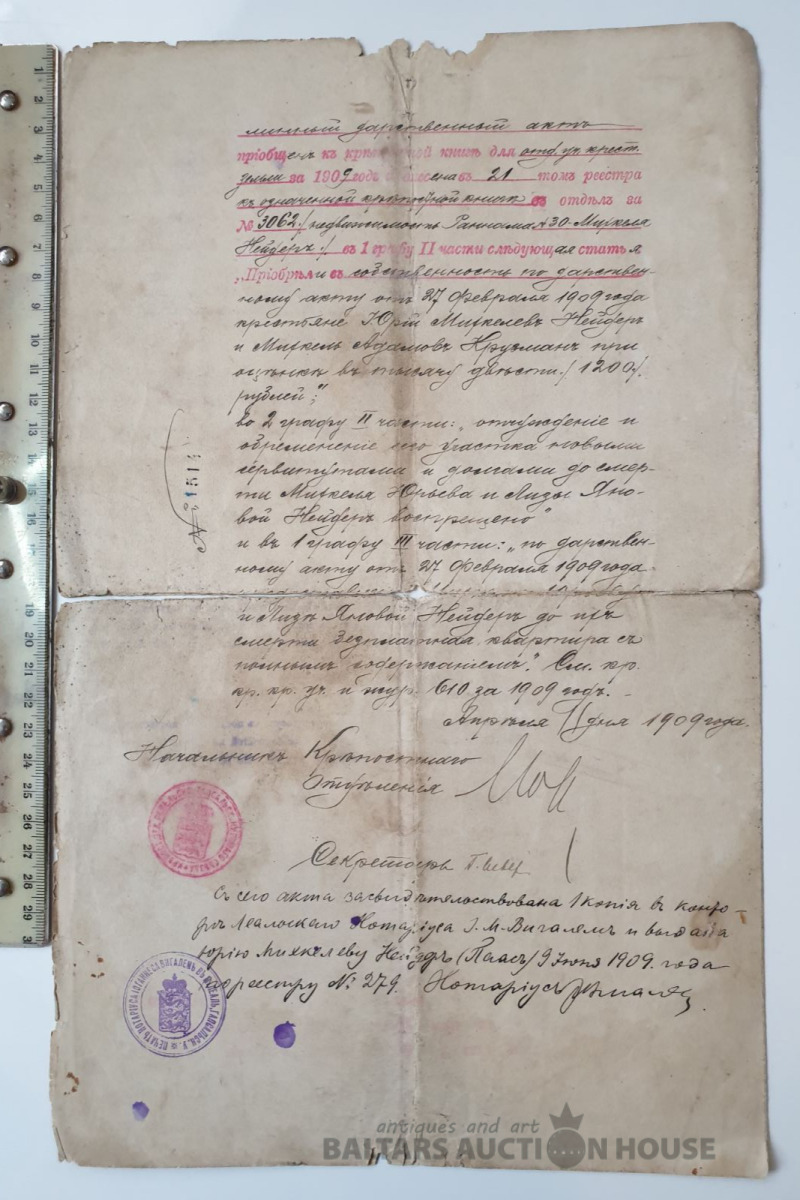 линный дарственный актъ
пріобщенъ къ крѣпостной книгѣ для отд. уч. крест.
земли за 1909 годъ и внесена въ 21 томъ реестра
къ означенной крѣпостной книгѣ въ отдѣлъ за
№ 3062 /недвижимость Раннама А 30 - Миркеля
Нейдеръ/. въ 1 графу II части слѣдующая статья
„Пріобрѣли въ собственность по дарствен-
ному акту отъ 27 Февраля 1909 года
крестьяне Юрій Миркелевъ Нейдеръ
и Миркель Адамовъ Круманъ при
оцѣнкѣ въ тысячу двѣсти /1200/.
рублей";
во 2 графу II части: „отчужденіе и
обремененіе его участка новыми
сервитутами и долгами до смер-
ти Миркеля Юрьева и Лизы Яно-
вой Нейдеръ воспрещено"
и въ 1 графу III части: „по дарствен-
ному акту отъ 27 Февраля 1909 года
и Лизѣ Яновой Нейдеръ до ихъ
смерти безплатная квартира съ
полнымъ содержаніемъ". См. кр.
кр. кр. уч. и жур. 610 за 1909 годъ.
Апрѣля 11 дня 1909 года.
Начальникъ Крѣпостнаго
Отдѣленія
Секретарь
Съ сего акта засвидѣтельствована 1 копія въ конто-
рѣ Леальскаго Нотаріуса І. М. Вигалемъ и выдана
Юрію Михкелеву Нейдеръ (Паас) 9 Іюня 1909 года
по реестру № 279. Нотаріусъ Вигалемъ
№ 1513
ПЕЧАТЬ НОТАРІУСА ІОГАННЕСА ВИГАЛЕМЪ ВЪ ЛЕАЛЬ, ГАПСАЛЬСК. У.
antiques and art
BALTARS AUCTION HOUSE
1
2
3
4
5
6
7
8
9
10
11
12
13
14
15
16
17
18
19
20
21
22
23
24
25
26
27
28
29